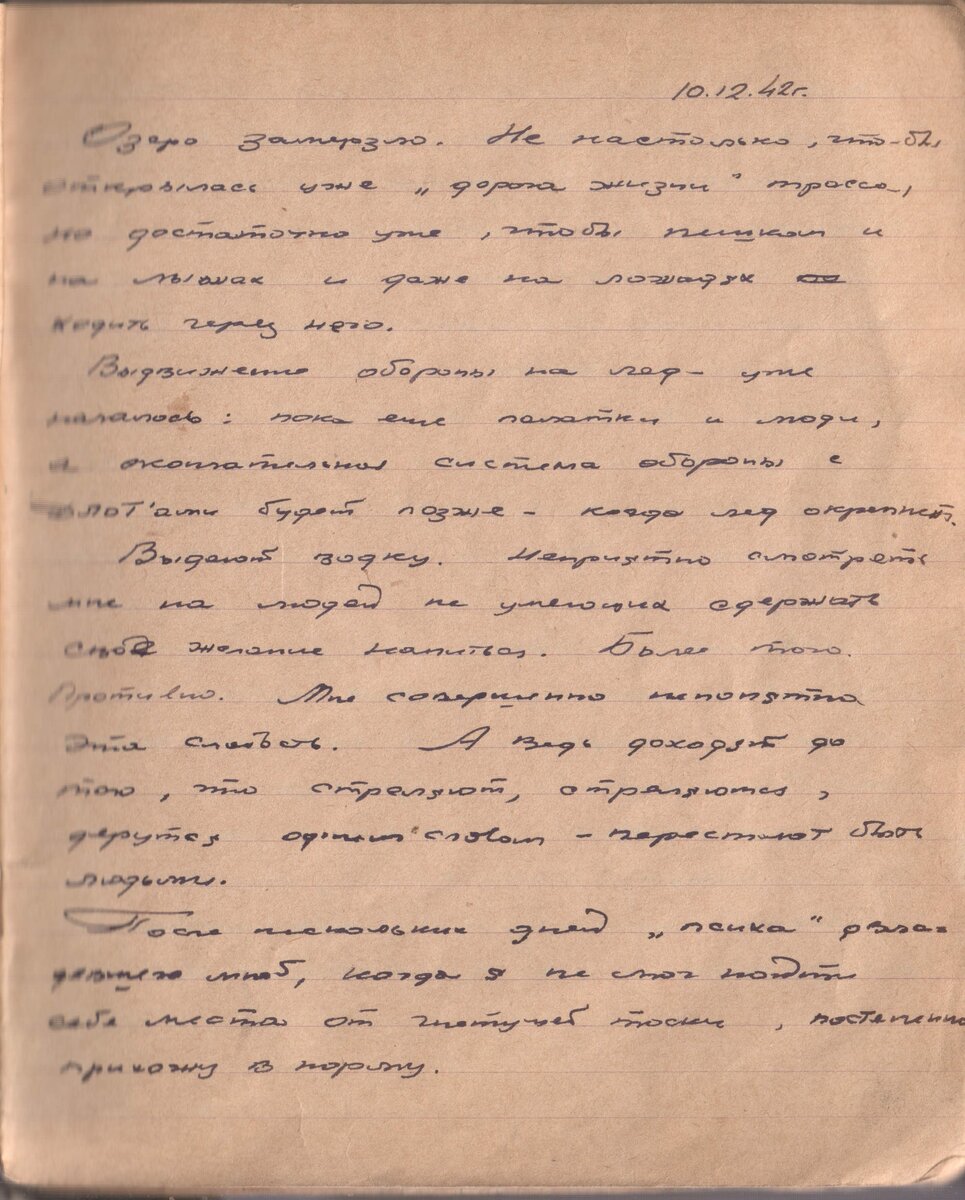 10.12.42г.
Озеро замерзло. Не настолько, что-бы
открылась уже „дорога жизни" трасса,
но достаточно уже, чтобы пешком и
на лыжах и даже на лошадях
ходить через него.
Выдвижение обороны на лед – уже
началось: пока еще палатки и люди,
а окопательная система обороны с
ДЗОТ'ами будет позже – когда лед окрепнет.
Выдают водку. Неприятно смотреть
мне на людей не умеющих сдержать
своё желание напиться. Более того.
Противно. Мне совершенно непонятна
эта слабость. А ведь доходят до
того, что стреляют, стреляются,
дерутся одним словом – перестают быть
людьми.
После нескольких дней „психа"
мной, когда я не мог найти
себе места от гнетущей тоски, постепенно
прихожу в норму.